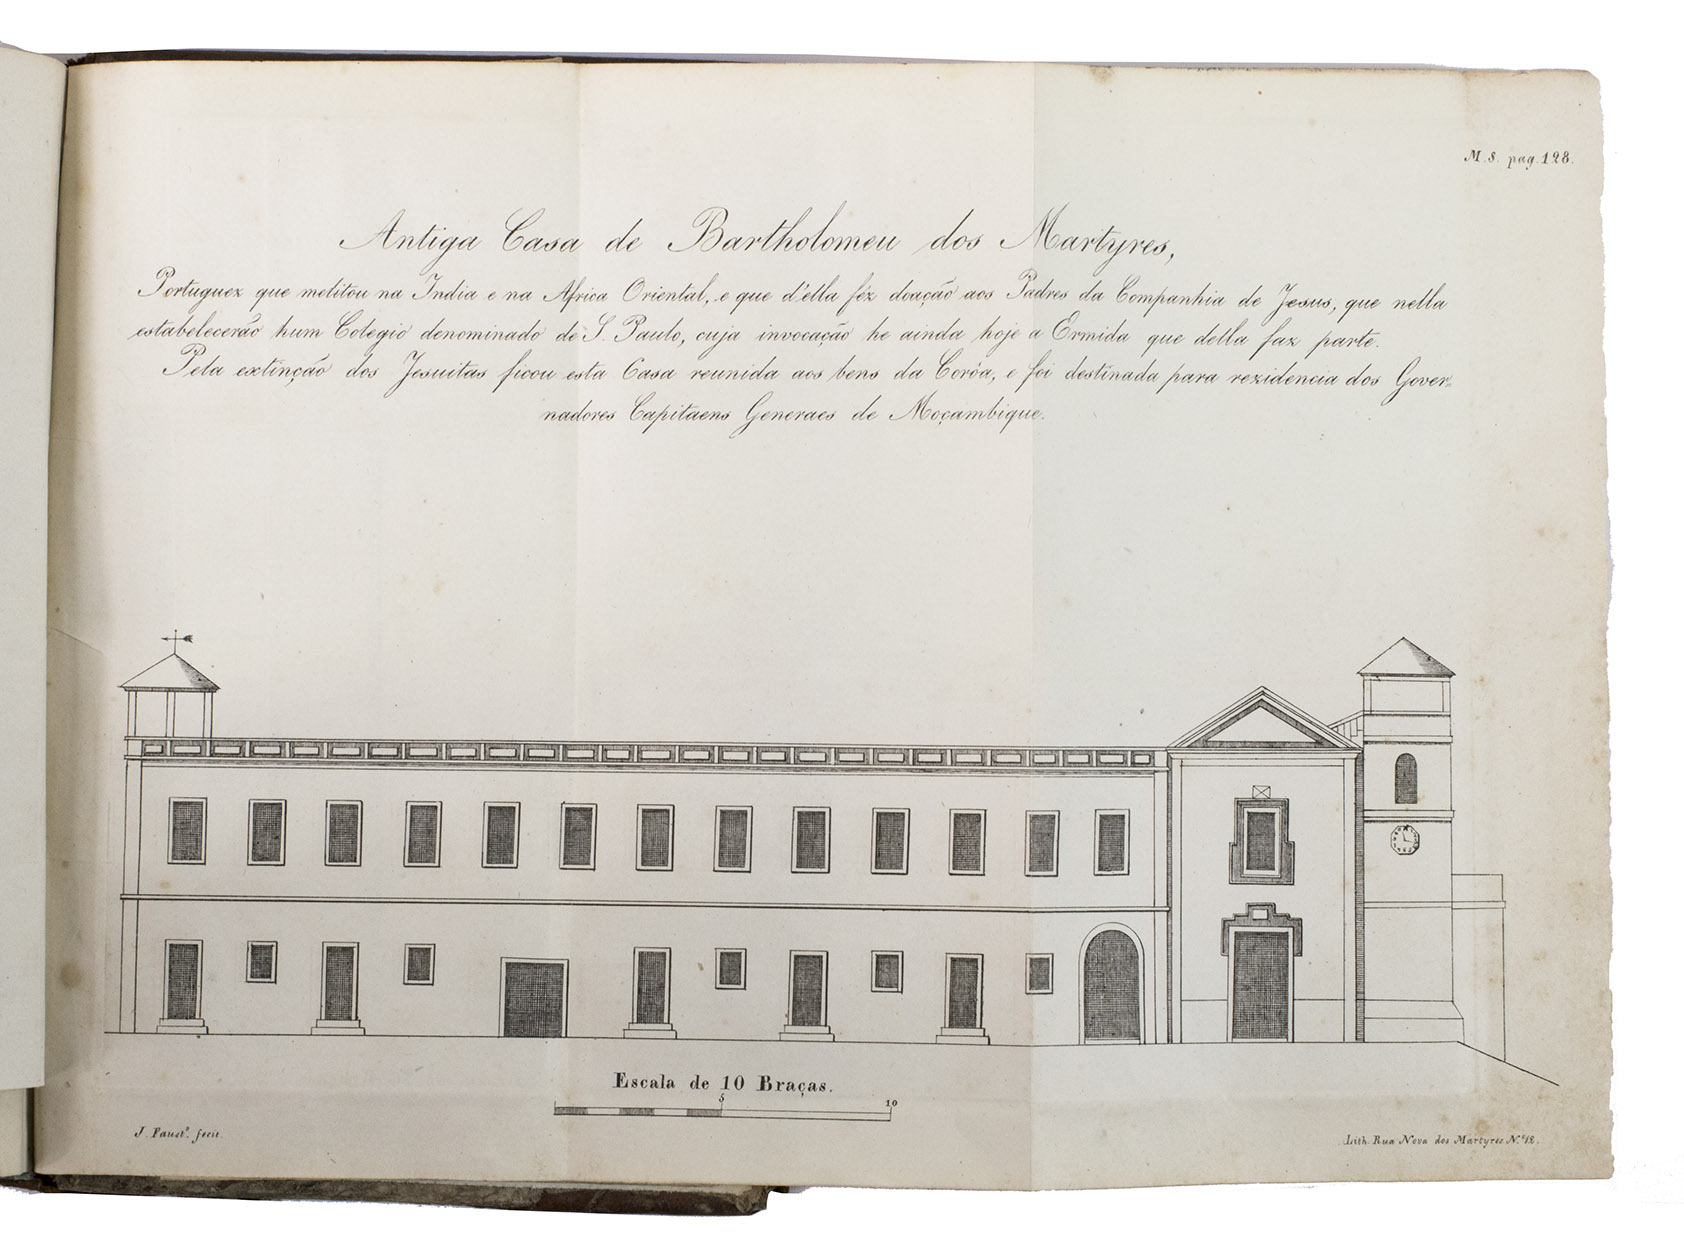 M. S. pag. 128.
Antiga Casa de Bartholomeu dos Martyres,
Portuguez que melitou na India e na Africa Oriental, e que d'ella féz doação aos Padres da Companhia de Jesus, que nella
estabelecerão hum Colegio denominado de S. Paulo, cuja invocação he ainda hoje a Ermida que della faz parte.
Pela extinção dos Jesuitas ficou esta Casa reunida aos bens da Corôa, e foi destinada para rezidencia dos Gover=
nadores Capitaens Generaes de Moçambique.
Escala de 10 Braças.
5
10
J. Faustº. fecit.
Lith. Rua Nova dos Martyres N.º 12.